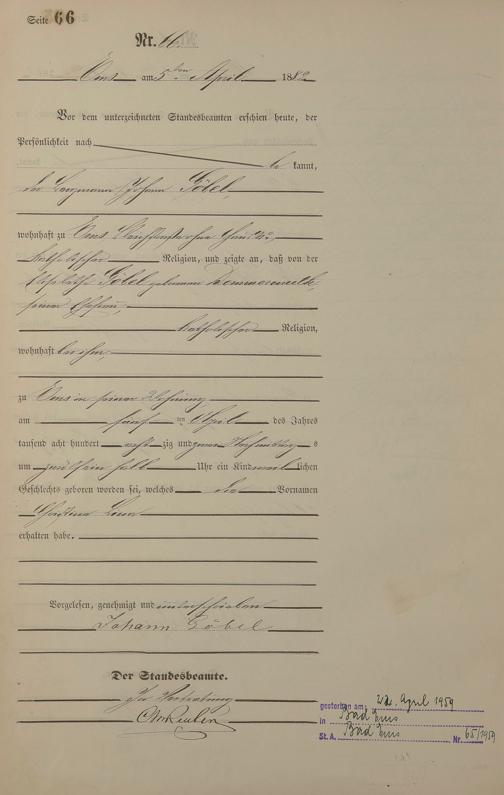 Seite 66
Nr. 66.
Ems am 5ten April 1882
Vor dem unterzeichneten Standesbeamten erschien heute, der
Persönlichkeit nach
be kannt,
der Bergmann Johann Göbel,
wohnhaft zu Ems
katholischer Religion, und zeigte an, daß von der
Göbel geborenen
seiner Ehefrau,
katholischer Religion,
wohnhaft bei ihm,
zu Ems in seiner Wohnung
am fünf ten April des Jahres
tausend acht hundert acht zig und zwei Vormittags
um halb Uhr ein Kind weib lichen
Geschlechts geboren worden sei, welches die Vornamen
Christina
erhalten habe.
Vorgelesen, genehmigt und unterschrieben
Johann Göbel
Der Standesbeamte.
In Vertretung
gestorben am: 22. April 1959
in Bad Ems
St. A. Bad Ems Nr. 65/1959